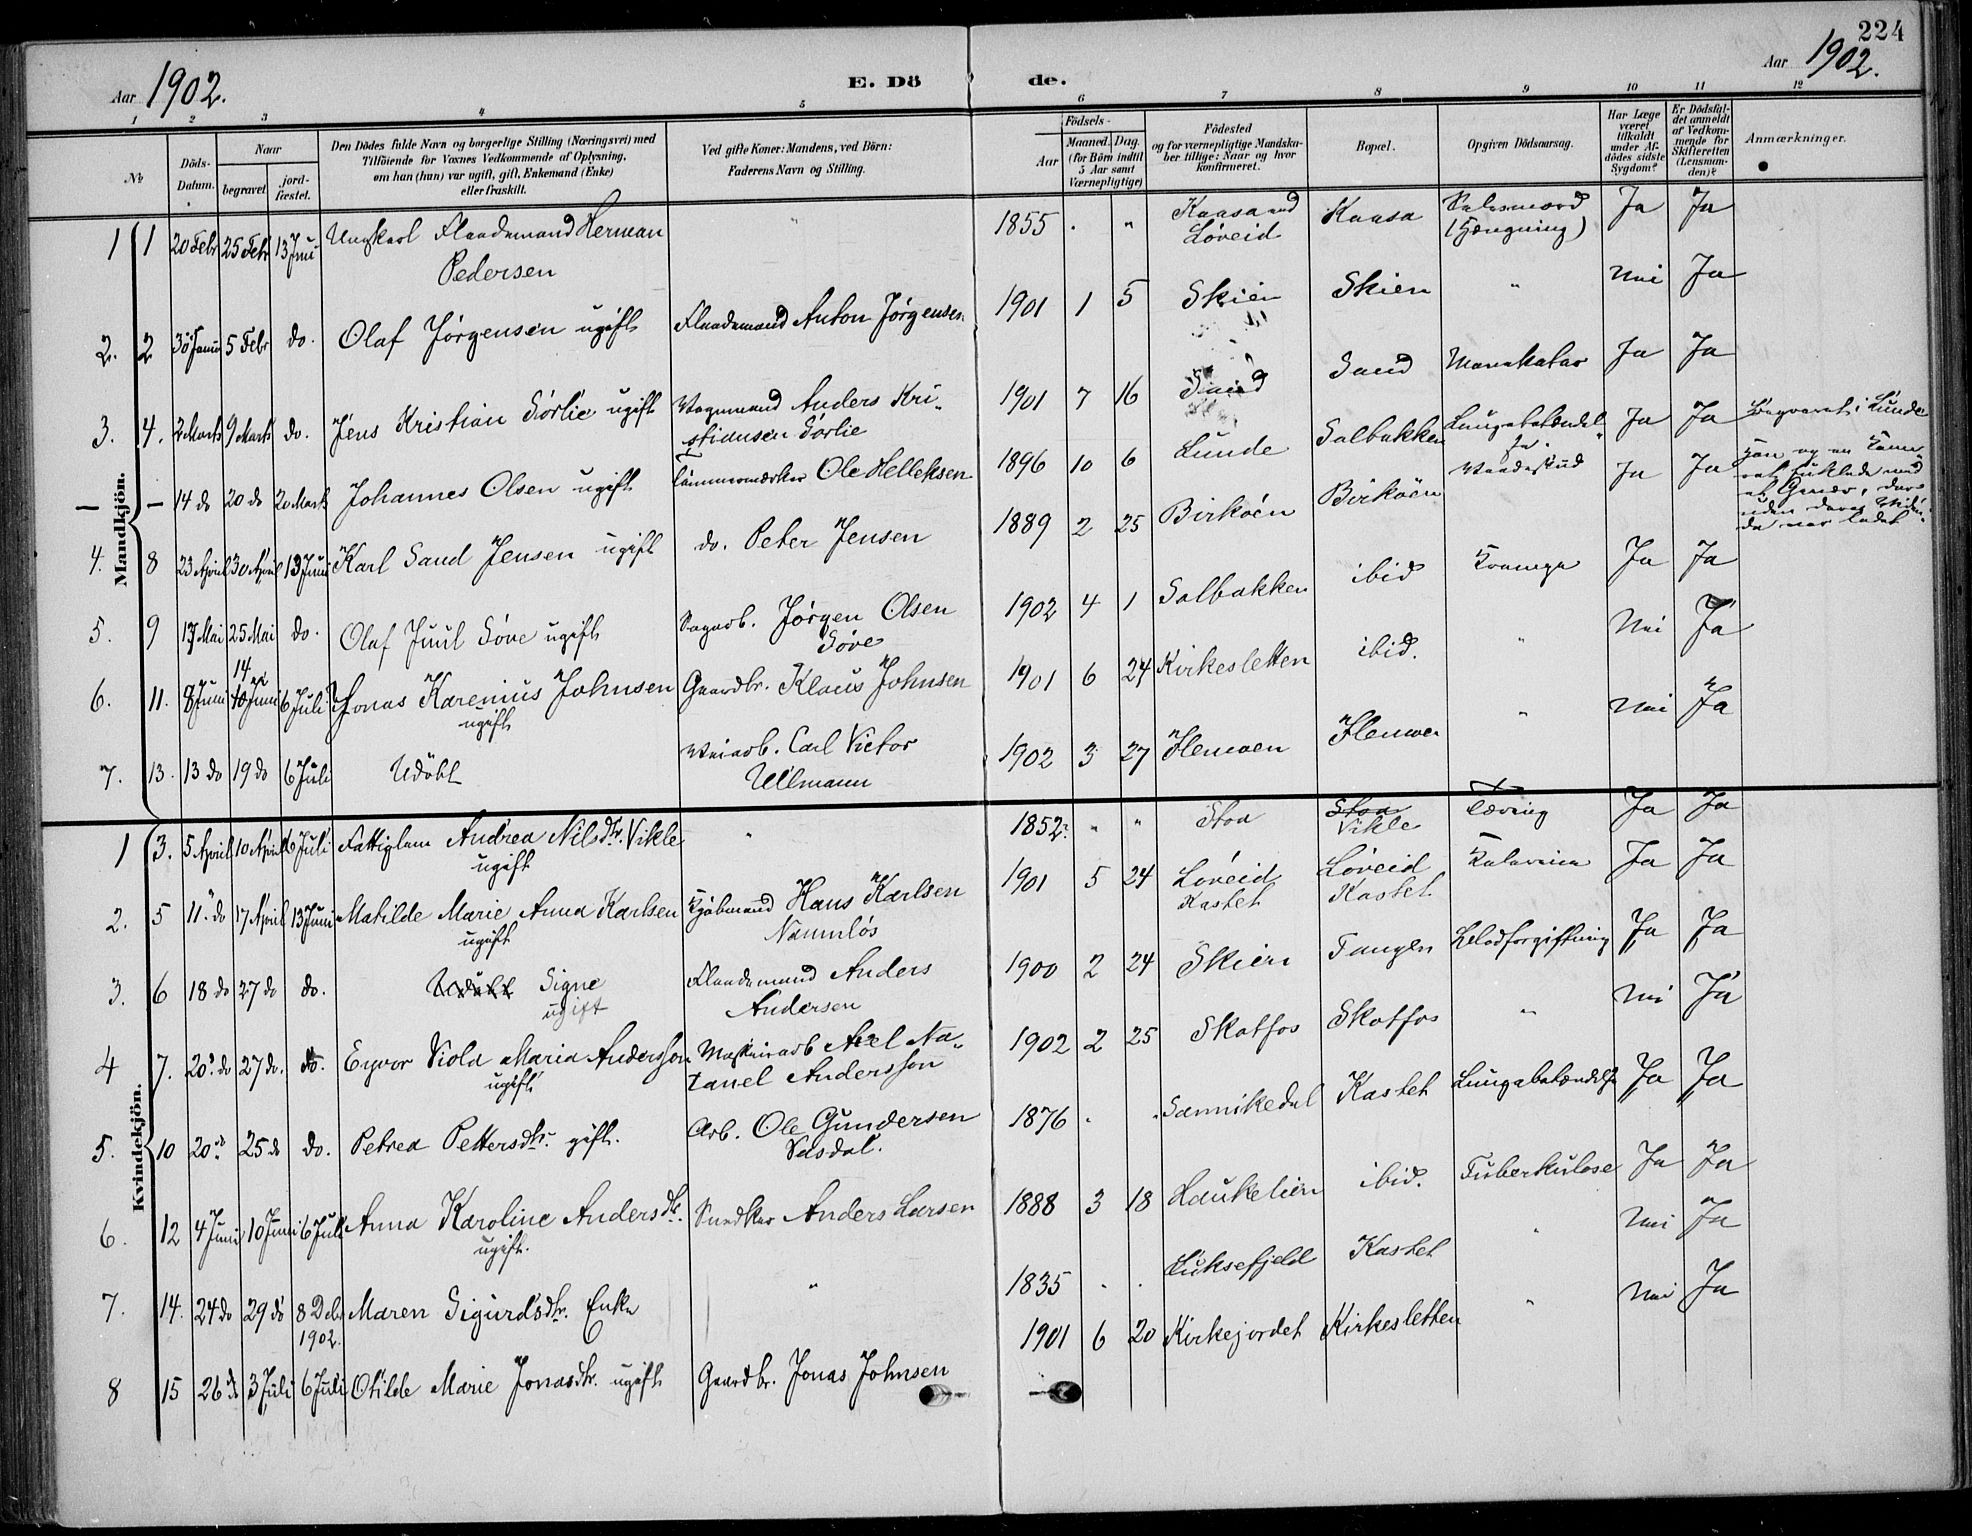 224
Aar 1902.
E. Dö de.
Aar 1902.
1 2 3 4 5 6 7 8 9 10 11 12
№
Döds-Datum.
Naar
begravet
jord-fæstet.
Den Dödes fulde Navn og borgerlige Stilling (Næringsvei) med
Tilföiende for Voxnes Vedkommende af Oplysning,
om han (hun) var ugift, gift, Enkemand (Enke)
eller fraskilt.
Ved gifte Koner: Mandens, ved Börn:
Faderens Navn og Stilling.
Födsels-
Aar
Maaned. Dag.
(for Börn indtil
5 Aar samt
Værnepligtige)
Födested
og for værnepligtige Mandska-
ber tillige: Naar og hvor
konfirmeret.
Bopæl.
Opgiven Dödsaarsag.
Har Læge
været
tilkaldt
under Af-
dödes sidste
Sygdom?
Er Dödsfal-
det anmeldt
af Vedkom-
mende for
Skifteretten
(Lensman-
den)?
Anmærkninger.
Mandkjön.
1 1 20 Febr 25 Febr 13 Juni Ungkarl Flaademand Herman Pedersen " 1855 . " Kaasa ved Løveid Kaasa Selvmord (Hængning) Ja Ja
2. 2 30 Januar 5 Febr do. Olaf Jørgensen ugift Flaademand Anton Jørgensen 1901 1 5 Skien Skien " Nei Ja
3. 4. 2 Marts 9 Marts do. Jens Kristian Sørlie ugift Vognmand Anders Kristiansen Sørlie 1901 7 16 Sand Sand Mavekatar Ja Ja
— — 14 do 20 do 20 Marts Johannes Olsen ugift Tømmermærker Ole Helleksen 1896 10 6 Lunde Solbakken Lungebetændelse Ja Ja Begravet i Lunde
4. 8 23 April 30 April 13 Juni Karl Sand Jensen ugift do. Peter Jensen 1889 2 25 Birkøen Birkøen Vaadeskud Ja Ja Han og en Kamerat
5. 9 17 Mai 25 Mai do. Olaf Juul Søve ugift Sagarb. Jørgen Olsen Søve 1902 4 1 Solbakken ibid Krampe Ja Ja
6. 11. 8 Juni 14 Juni 6 Juli Jonas Karenius Johnsen ugift Gaardbr. Klaus Johnsen 1901 6 24 Kirkesletten ibid. " Nei Ja
7. 13. 13 do 19 do 6 Juli Udøbt Veiarb. Carl Victor Ullmann 1902 3 27 Flemoen " Nei Ja
Kvindekjön.
1 3. 5 April 10 April 6 Juli Fattiglem Andrea Nilsdtr. Vikle ugift " 1852 " " Stoa Stoa Vikle Tæring Ja Ja
2. 5 11. do 17 April 13 Juni Matilde Marie Anna Karlsen ugift Kjøbmand Hans Karlsen Namnløs 1901 5 24 Løveid Kastet Løveid Kastet Ja Ja
3. 6 18 do 27 do do. Udøbt Signe ugift Flaademand Anders Andersen 1900 2 24 Skien Tangen Blodforgiftning Ja Ja
4 7. 20. do 27 do. do. Eyvor Viola Maria Andersson ugift Maskinarb Axel Natanel Andersson 1902 2 25 Skotfos Skotfos " Nei Ja
5. 10 20. do 25 do do. Petrea Pettersdtr. gift. Arb. Ole Gundersen 1876 . . Sannikedal Kastet Lungebetændelse Ja Ja
6. 12 4 Juni 10 Juni 6 Juli Anna Karoline Andersdtr. ugift. Snedker Anders Larsen 1888 3 18 Haukelien ibid. Tuberkulose Ja Ja
7. 14. 24 do 29 do 8 Debr 1902. Maren Sigurdsdtr. Enke " 1835 . . Luksefjeld Kastet " Nei Ja
8 15 26 do 3 Juli 6 Juli Otilde Marie Jonasdtr. ugift Gaardbr. Jonas Johnsen 1901 6 20 Kirkejordet Kirkesletten " Nei Ja